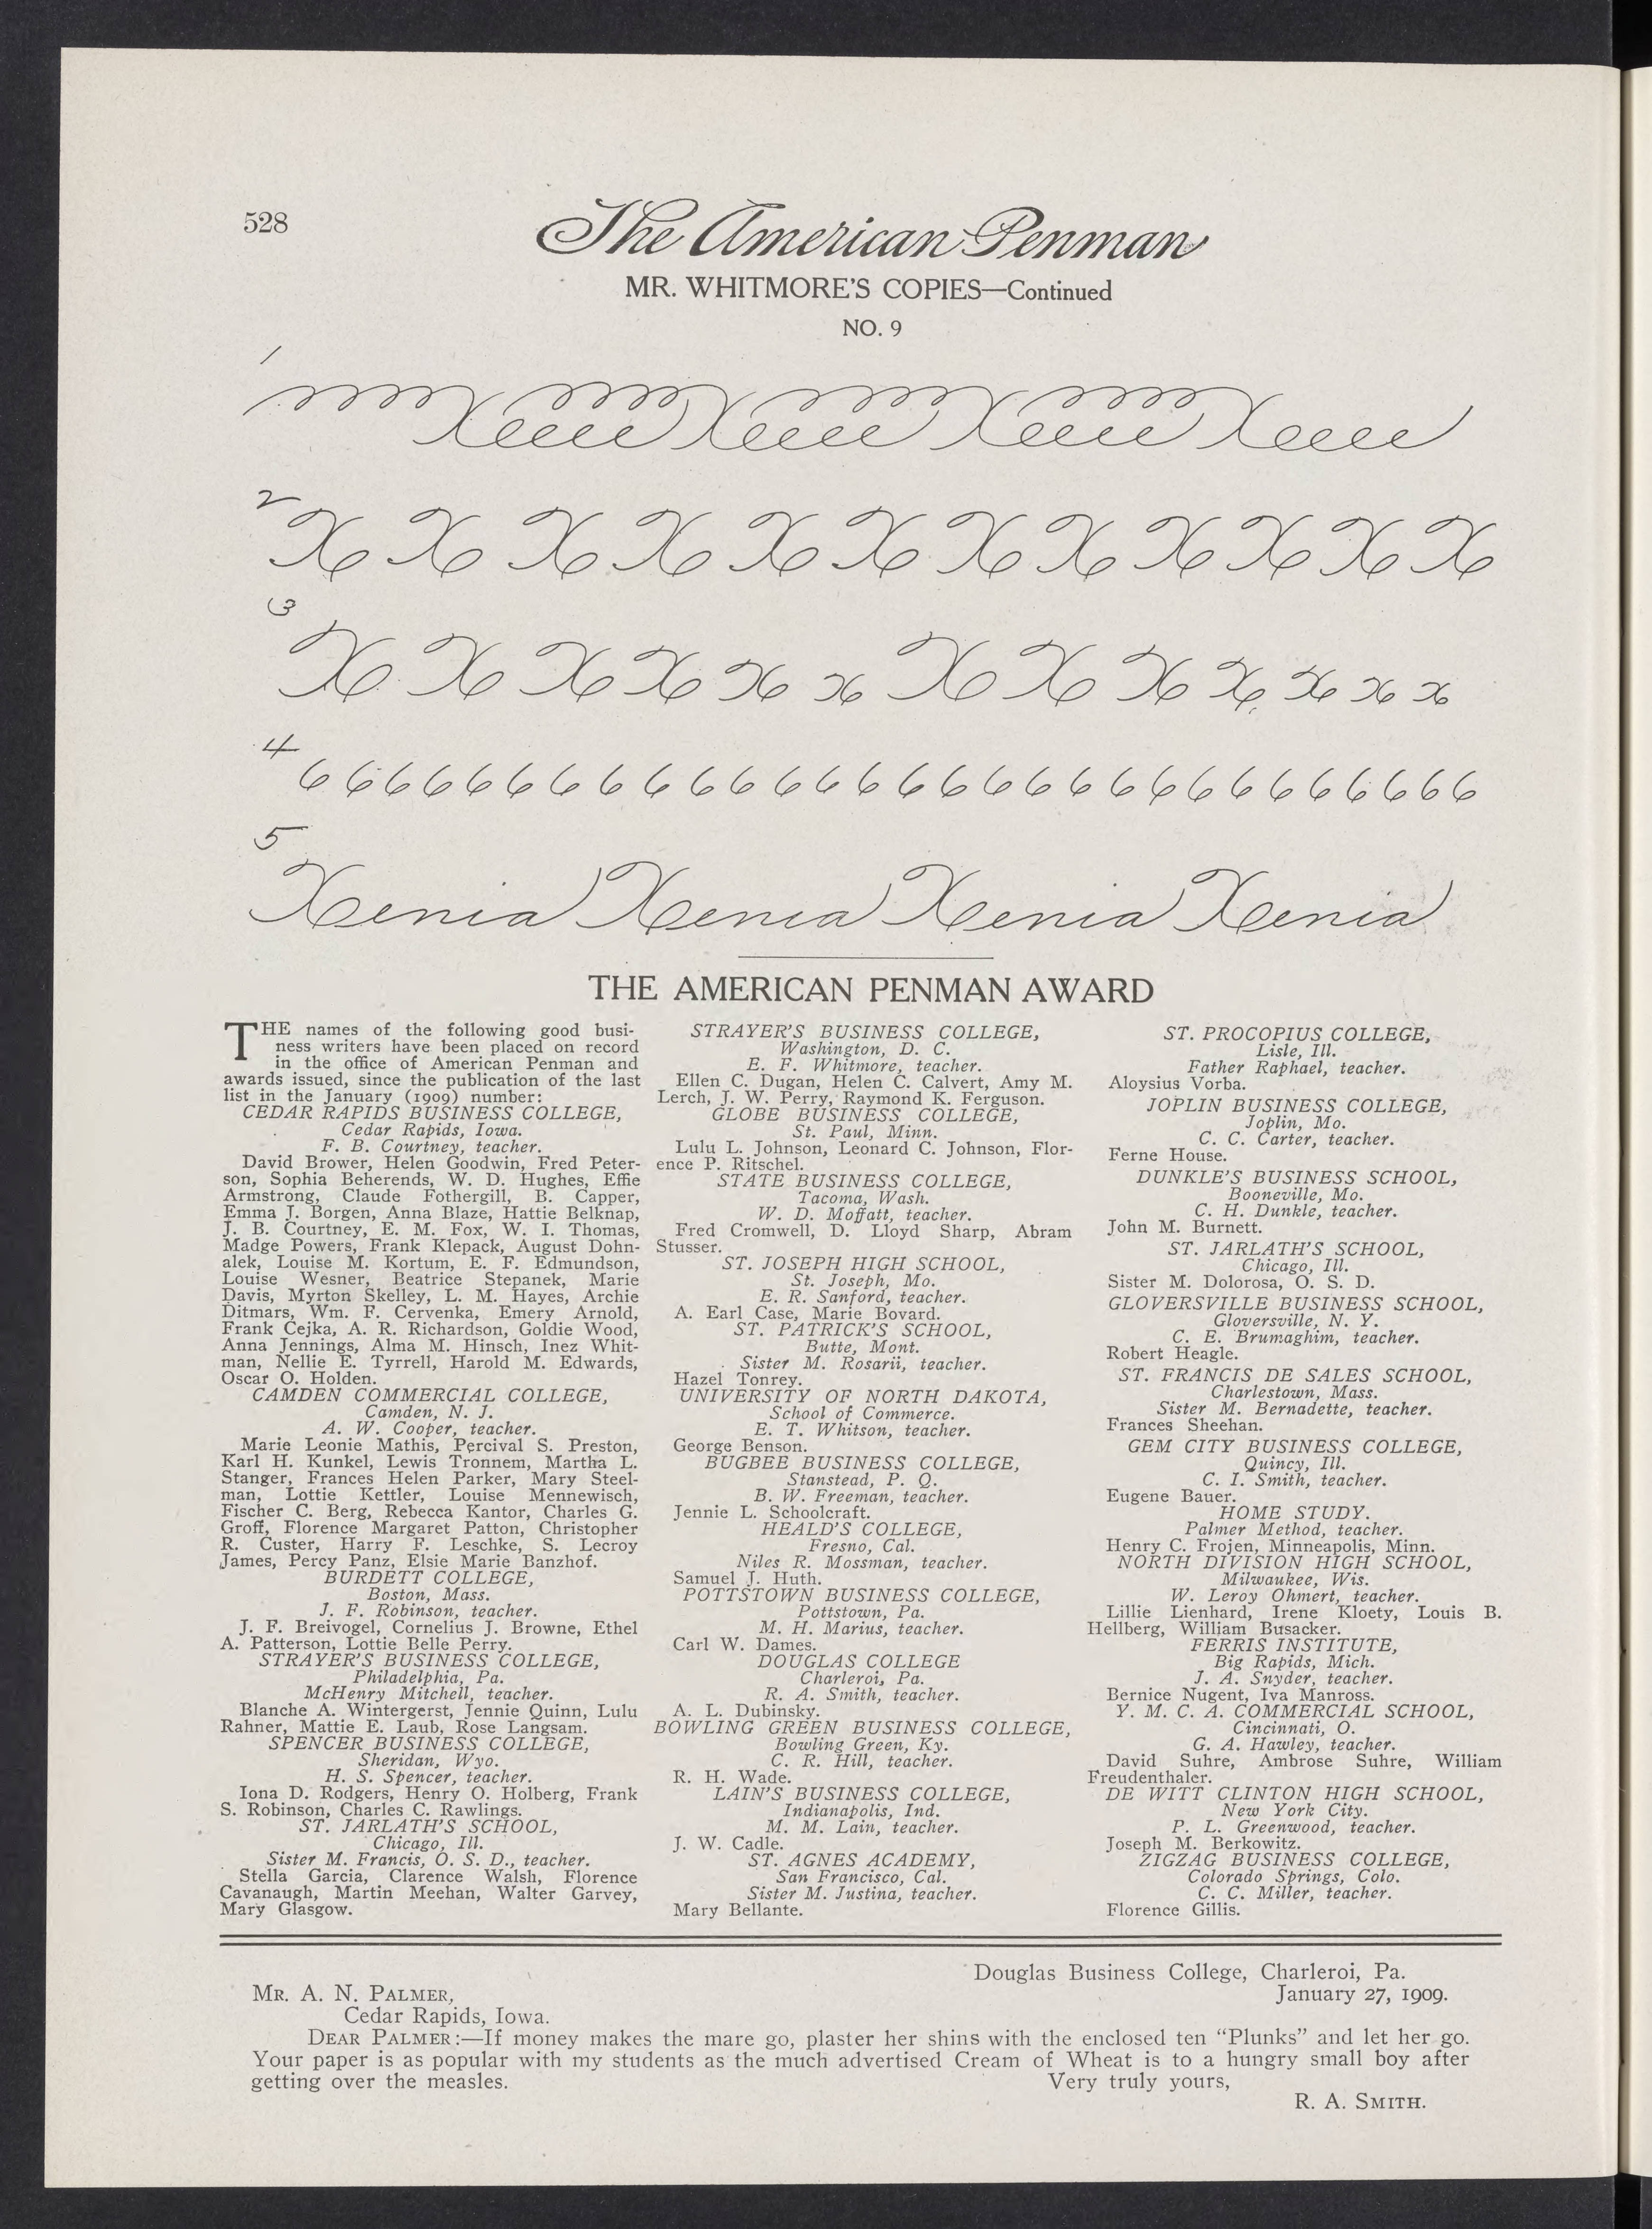 528
The American Penman
MR. WHITMORE'S COPIES—Continued
NO. 9
1
2
X X X X X X X X X X X X
3
X X X X X X X X X X X X X
4
6 6 6 6 6 6 6 6 6 6 6 6 6 6 6 6 6 6 6 6 6 6 6 6 6 6 6 6 6
5
Xenia Xenia Xenia Xenia
THE AMERICAN PENMAN AWARD
THE names of the following good busi-
ness writers have been placed on record
in the office of American Penman and
awards issued, since the publication of the last
list in the January (1909) number:
CEDAR RAPIDS BUSINESS COLLEGE,
Cedar Rapids, Iowa.
F. B. Courtney, teacher.
David Brower, Helen Goodwin, Fred Peter-
son, Sophia Beherends, W. D. Hughes, Effie
Armstrong, Claude Fothergill, B. Capper,
Emma J. Borgen, Anna Blaze, Hattie Belknap,
J. B. Courtney, E. M. Fox, W. I. Thomas,
Madge Powers, Frank Klepack, August Dohn-
alek, Louise M. Kortum, E. F. Edmundson,
Louise Wesner, Beatrice Stepanek, Marie
Davis, Myrton Skelley, L. M. Hayes, Archie
Ditmars, Wm. F. Cervenka, Emery Arnold,
Frank Cejka, A. R. Richardson, Goldie Wood,
Anna Jennings, Alma M. Hinsch, Inez Whit-
man, Nellie E. Tyrrell, Harold M. Edwards,
Oscar O. Holden.
CAMDEN COMMERCIAL COLLEGE,
Camden, N. J.
A. W. Cooper, teacher.
Marie Leonie Mathis, Percival S. Preston,
Karl H. Kunkel, Lewis Tronnem, Martha L.
Stanger, Frances Helen Parker, Mary Steel-
man, Lottie Kettler, Louise Mennewisch,
Fischer C. Berg, Rebecca Kantor, Charles G.
Groff, Florence Margaret Patton, Christopher
R. Custer, Harry F. Leschke, S. Lecroy
James, Percy Panz, Elsie Marie Banzhof.
BURDETT COLLEGE,
Boston, Mass.
J. F. Robinson, teacher.
J. F. Breivogel, Cornelius J. Browne, Ethel
A. Patterson, Lottie Belle Perry.
STRAYER'S BUSINESS COLLEGE,
Philadelphia, Pa.
McHenry Mitchell, teacher.
Blanche A. Wintergerst, Jennie Quinn, Lulu
Rahner, Mattie E. Laub, Rose Langsam.
SPENCER BUSINESS COLLEGE,
Sheridan, Wyo.
H. S. Spencer, teacher.
Iona D. Rodgers, Henry O. Holberg, Frank
S. Robinson, Charles C. Rawlings.
ST. JARLATH'S SCHOOL,
Chicago, Ill.
Sister M. Francis, O. S. D., teacher.
Stella Garcia, Clarence Walsh, Florence
Cavanaugh, Martin Meehan, Walter Garvey,
Mary Glasgow.
STRAYER'S BUSINESS COLLEGE,
Washington, D. C.
E. F. Whitmore, teacher.
Ellen C. Dugan, Helen C. Calvert, Amy M.
Lerch, J. W. Perry, Raymond K. Ferguson.
GLOBE BUSINESS COLLEGE,
St. Paul, Minn.
Lulu L. Johnson, Leonard C. Johnson, Flor-
ence P. Ritschel.
STATE BUSINESS COLLEGE,
Tacoma, Wash.
W. D. Moffatt, teacher.
Fred Cromwell, D. Lloyd Sharp, Abram
Stusser.
ST. JOSEPH HIGH SCHOOL,
St. Joseph, Mo.
E. R. Sanford, teacher.
A. Earl Case, Marie Bovard.
ST. PATRICK'S SCHOOL,
Butte, Mont.
Sister M. Rosarii, teacher.
Hazel Tonrey.
UNIVERSITY OF NORTH DAKOTA,
School of Commerce.
E. T. Whitson, teacher.
George Benson.
BUGBEE BUSINESS COLLEGE,
Stanstead, P. Q.
B. W. Freeman, teacher.
Jennie L. Schoolcraft.
HEALD'S COLLEGE,
Fresno, Cal.
Niles R. Mossman, teacher.
Samuel J. Huth.
POTTSTOWN BUSINESS COLLEGE,
Pottstown, Pa.
M. H. Marius, teacher.
Carl W. Dames.
DOUGLAS COLLEGE
Charleroi, Pa.
R. A. Smith, teacher.
A. L. Dubinsky.
BOWLING GREEN BUSINESS COLLEGE,
Bowling Green, Ky.
C. R. Hill, teacher.
R. H. Wade.
LAIN'S BUSINESS COLLEGE,
Indianapolis, Ind.
M. M. Lain, teacher.
J. W. Cadle.
ST. AGNES ACADEMY,
San Francisco, Cal.
Sister M. Justina, teacher.
Mary Bellante.
ST. PROCOPIUS COLLEGE,
Lisle, Ill.
Father Raphael, teacher.
Aloysius Vorba.
JOPLIN BUSINESS COLLEGE,
Joplin, Mo.
C. C. Carter, teacher.
Ferne House.
DUNKLE'S BUSINESS SCHOOL,
Booneville, Mo.
C. H. Dunkle, teacher.
John M. Burnett.
ST. JARLATH'S SCHOOL,
Chicago, Ill.
Sister M. Dolorosa, O. S. D.
GLOVERSVILLE BUSINESS SCHOOL,
Gloversville, N. Y.
C. E. Brumaghim, teacher.
Robert Heagle.
ST. FRANCIS DE SALES SCHOOL,
Charlestown, Mass.
Sister M. Bernadette, teacher.
Frances Sheehan.
GEM CITY BUSINESS COLLEGE,
Quincy, Ill.
C. I. Smith, teacher.
Eugene Bauer.
HOME STUDY.
Palmer Method, teacher.
Henry C. Frojen, Minneapolis, Minn.
NORTH DIVISION HIGH SCHOOL,
Milwaukee, Wis.
W. Leroy Ohmert, teacher.
Lillie Lienhard, Irene Kloety, Louis B.
Hellberg, William Busacker.
FERRIS INSTITUTE,
Big Rapids, Mich.
J. A. Snyder, teacher.
Bernice Nugent, Iva Manross.
Y. M. C. A. COMMERCIAL SCHOOL,
Cincinnati, O.
G. A. Hawley, teacher.
David Suhre, Ambrose Suhre, William
Freudenthaler.
DE WITT CLINTON HIGH SCHOOL,
New York City.
P. L. Greenwood, teacher.
Joseph M. Berkowitz.
ZIGZAG BUSINESS COLLEGE,
Colorado Springs, Colo.
C. C. Miller, teacher.
Florence Gillis.
Douglas Business College, Charleroi, Pa.
January 27, 1909.
MR. A. N. PALMER,
Cedar Rapids, Iowa.
DEAR PALMER:—If money makes the mare go, plaster her shins with the enclosed ten "Plunks" and let her go.
Your paper is as popular with my students as the much advertised Cream of Wheat is to a hungry small boy after
getting over the measles. Very truly yours,
R. A. SMITH.